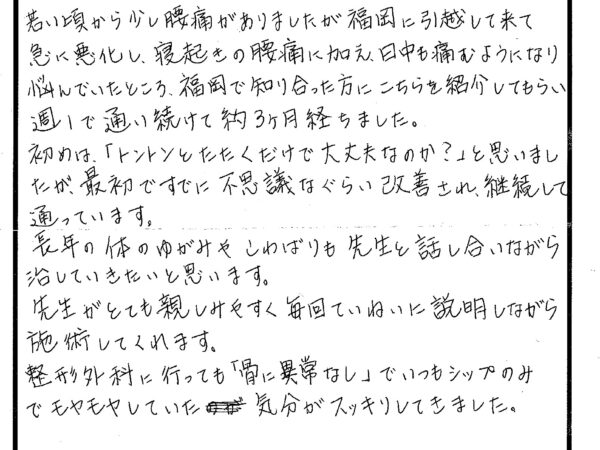 若い頃から少し腰痛がありましたが福岡に引越して来て
急に悪化し、寝起きの腰痛に加え、日中も痛むようになり
悩んでいたところ、福岡で知り合った方にこちらを紹介してもらい
週1で通い続けて約3ヶ月経ちました。
初めは、「トントンとたたくだけで大丈夫なのか?」と思いまし
たが、最初ですでに不思議なぐらい改善され、継続して
通っています。
長年の体のゆがみやこわばりも先生と話し合いながら
治していきたいと思います。
先生がとても親しみやすく毎回ていねいに説明しながら
施術してくれます。
整形外科に行っても「骨に異常なし」でいつもシップのみ
でモヤモヤしていた気分がスッキリしてきました。